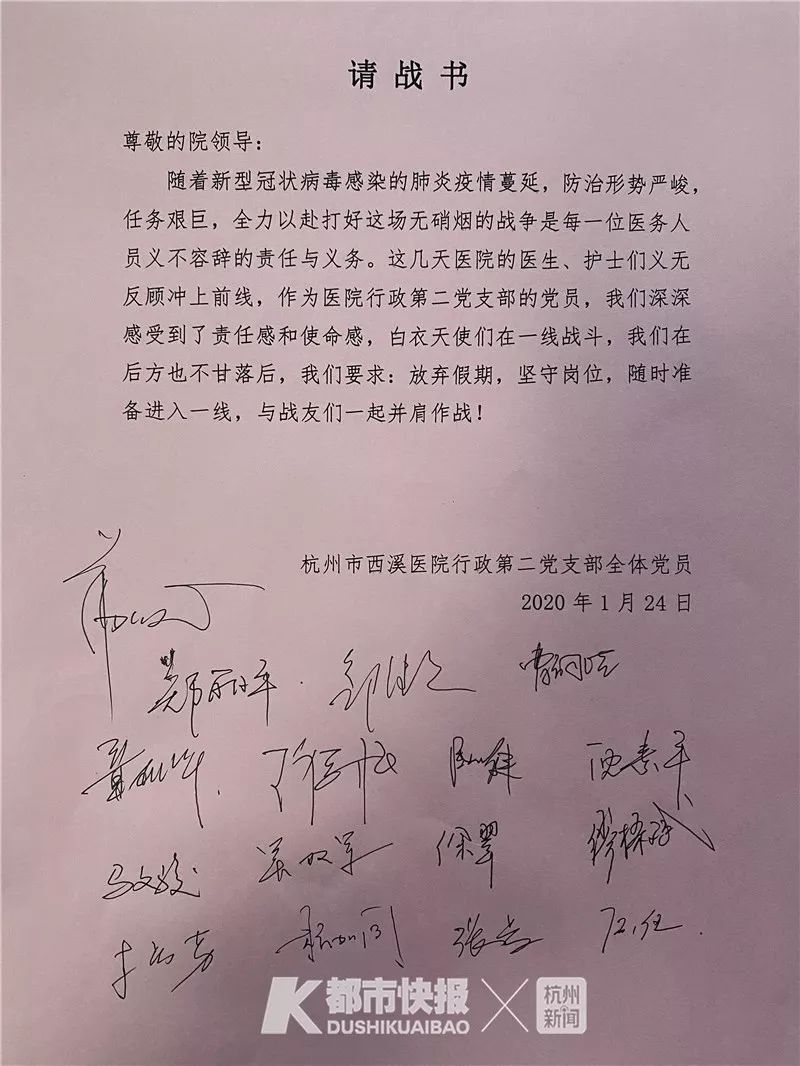 请战书
尊敬的院领导：
随着新型冠状病毒感染的肺炎疫情蔓延，防治形势严峻，
任务艰巨，全力以赴打好这场无硝烟的战争是每一位医务人
员义不容辞的责任与义务。这几天医院的医生、护士们义无
反顾冲上前线，作为医院行政第二党支部的党员，我们深深
感受到了责任感和使命感，白衣天使们在一线战斗，我们在
后方也不甘落后，我们要求：放弃假期，坚守岗位，随时准
备进入一线，与战友们一起并肩作战！
杭州市西溪医院行政第二党支部全体党员
2020年1月24日
徐翠
都市快报
DUSHIKUAIBAO
杭州
新闻